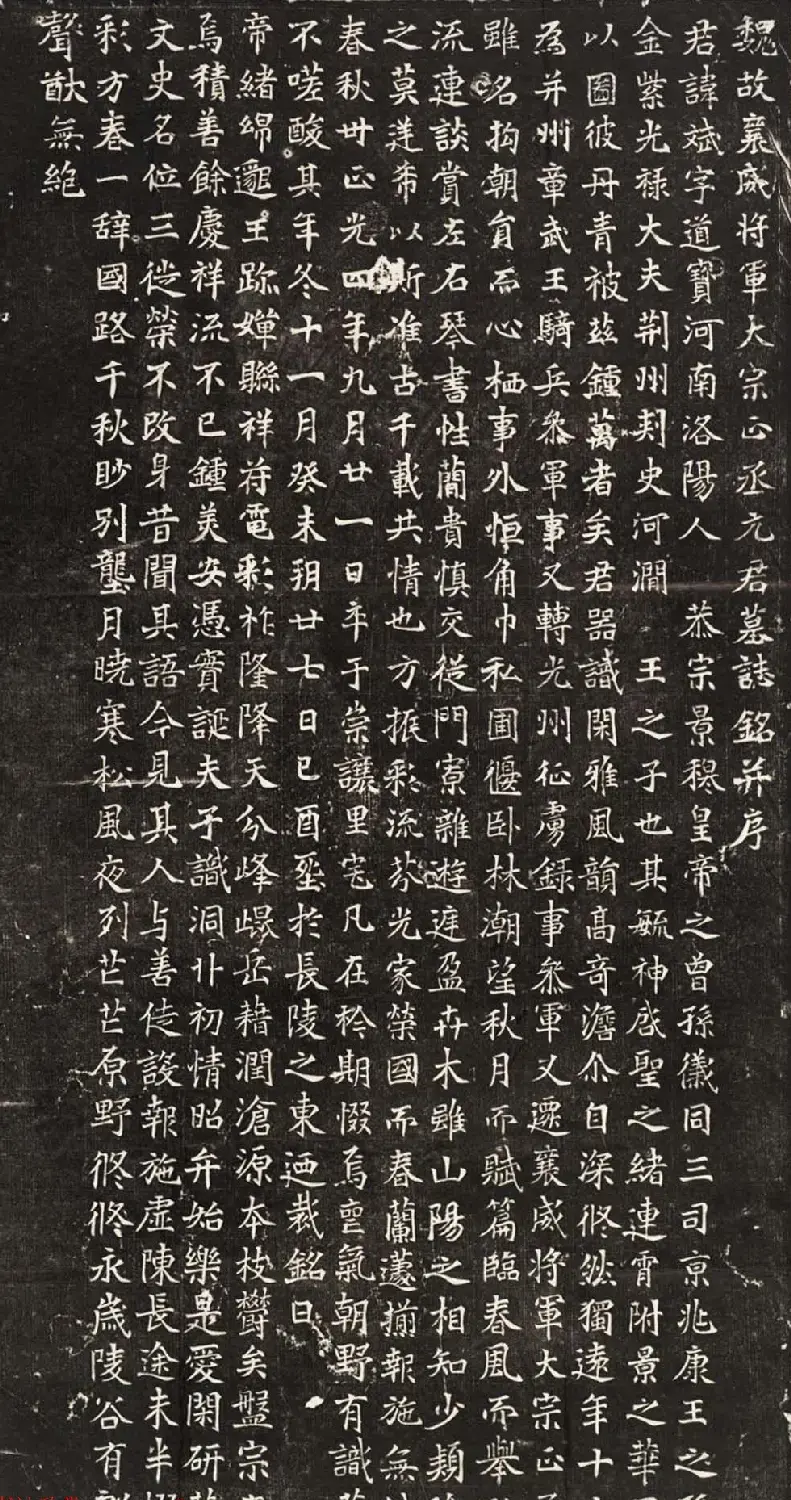 魏故襄威将軍大宗正丞元君墓誌銘并序
君諱斌字道寶河南洛陽人 恭宗景穆皇帝之曾孫儀同三司京兆康王之
金紫光祿大夫荆州刺史河澗 王之子也其毓神启聖之緒連霄附景之華
以圖彼丹青被兹鍾萬者矣君器識閑雅風韻高奇澹尒自深俢然獨遠年十
為并州章武王騎兵叅軍事又轉光州征虜録事叅軍又遷襄威将軍大宗正
雖名拘朝員而心栖事外恒角巾私圃偃卧林潮望秋月而賦篇臨春風而舉
流連談賞左右琴書性簡貴慎交從門寮雜遊庭盈卉木雖山陽之相知少頪
之莫逆希以斯准古千載共情也方振彩流芬光家榮國而春蘭薆揃報施無
春秋卅正光四年九月廿一日卒于崇讓里宅凡在衿期惙焉亶氣朝野有識
不嗟酸其年冬十一月癸未朔廿七日己酉塟於長陵之東迺裁銘曰
帝緒綿邈王跡嬋聯祥符電彩祚隆降天分峰㠉岳藉潤滄源本枝欝矣盤宗
焉積善餘慶祥流不已鍾美安憑實誕夫子識洞卝初情昭弁始樂是愛閑研
文史名位三徙榮不改身昔聞其語今見其人与善徒設報施虛陳長途未半
彩方春一辞國路千秋眇別壟月曉寒松風夜列芒芒原野俢俢永歲陵谷有
聲猷無絶